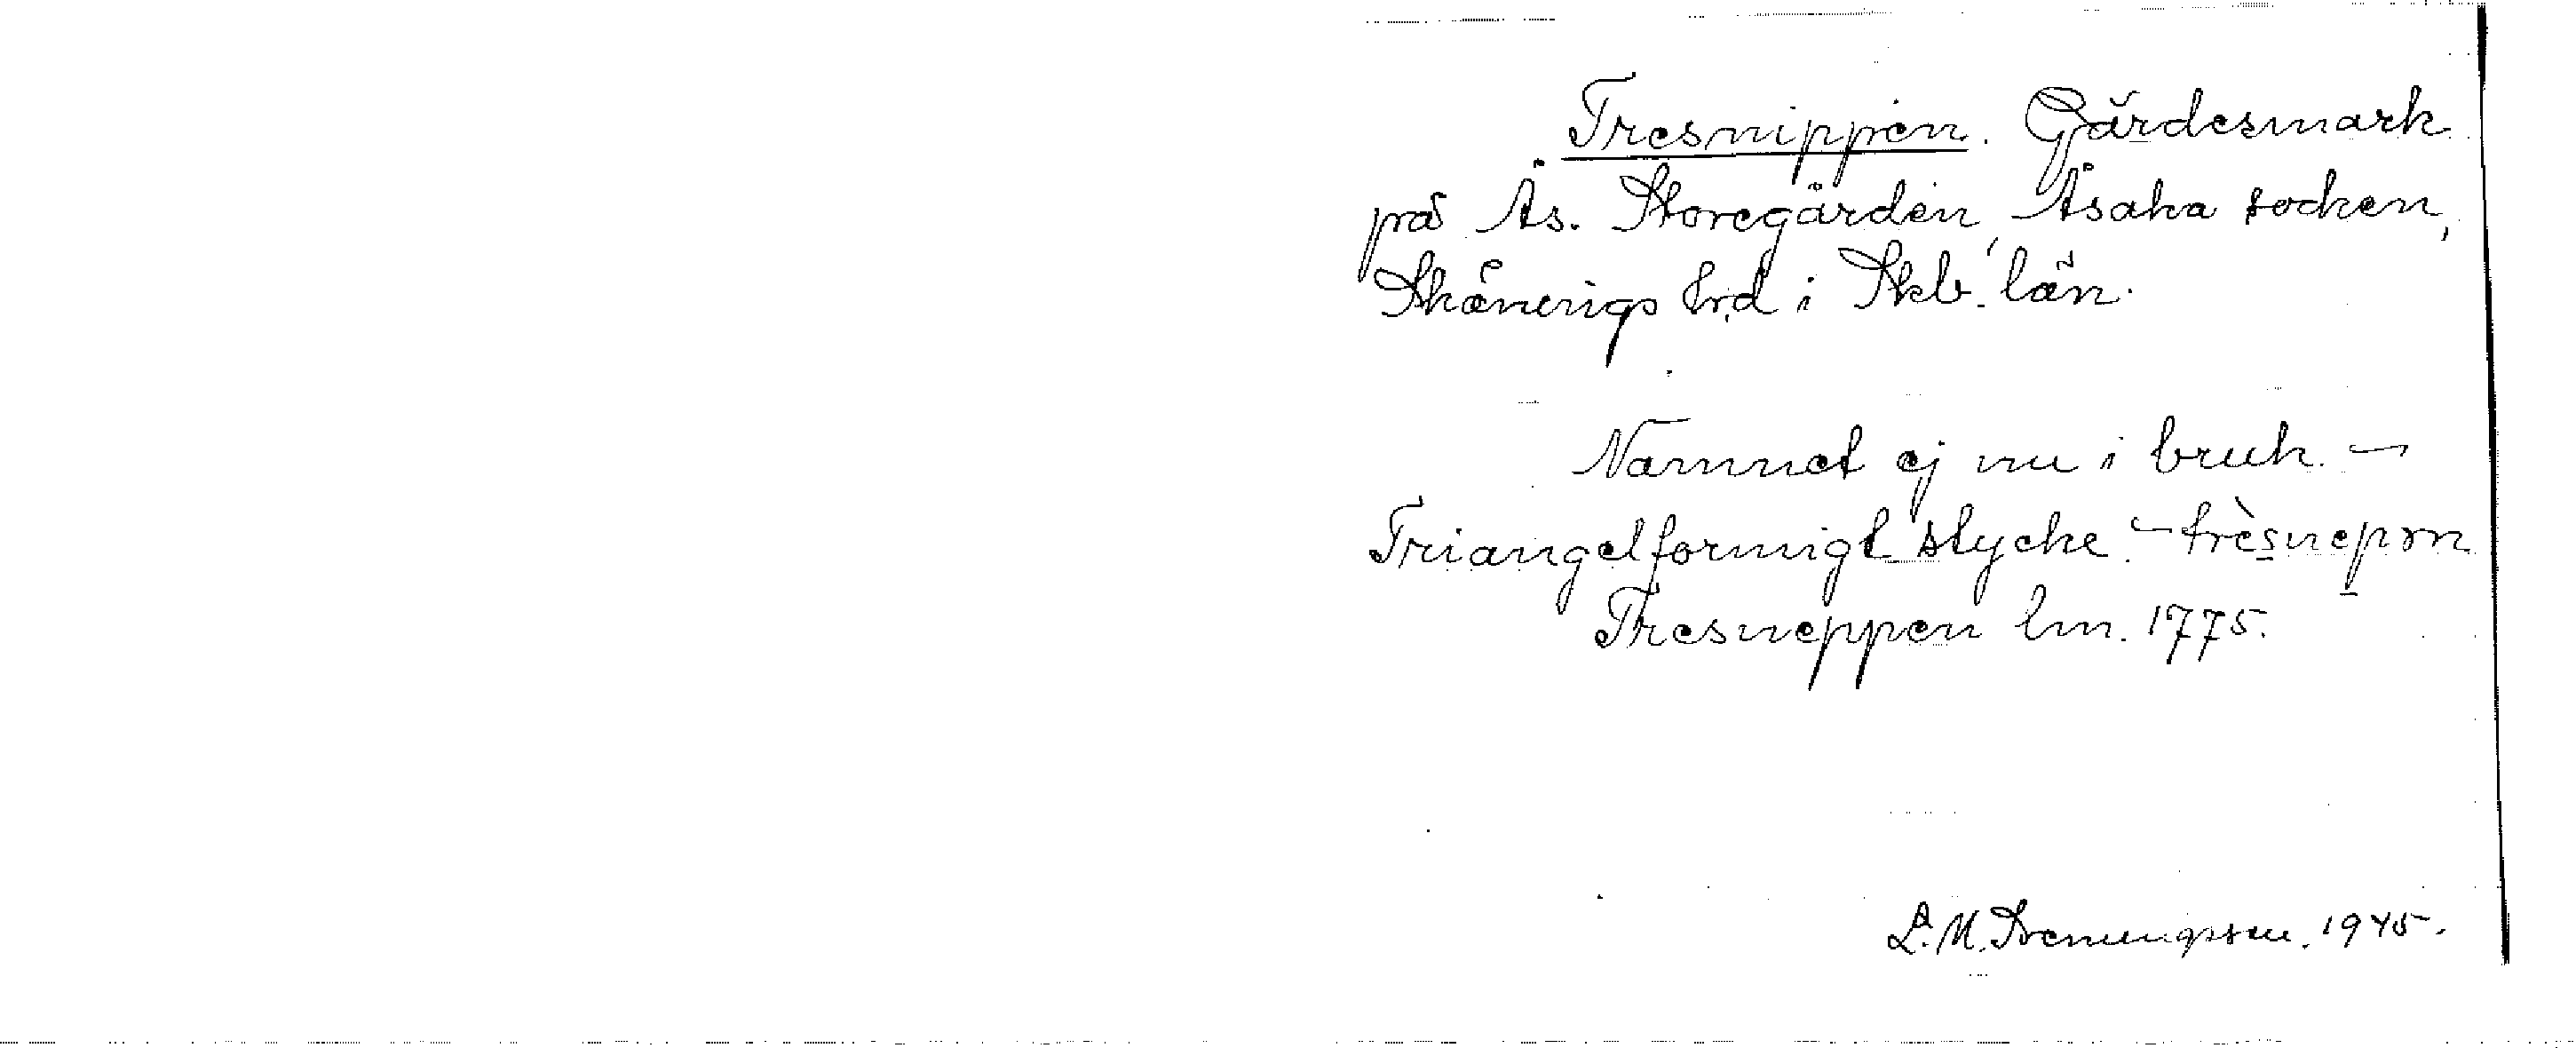 Tresnippen. Gärdesmark
på Ås. Storegården, Åsaka socken,
Skånings hrd i Skb. län.
Namnet ej nu i bruk. –
Triangelformigt stycke. – trèsnepən
Tresneppen lm. 1775.
L. M. Svenungsson. 1945.